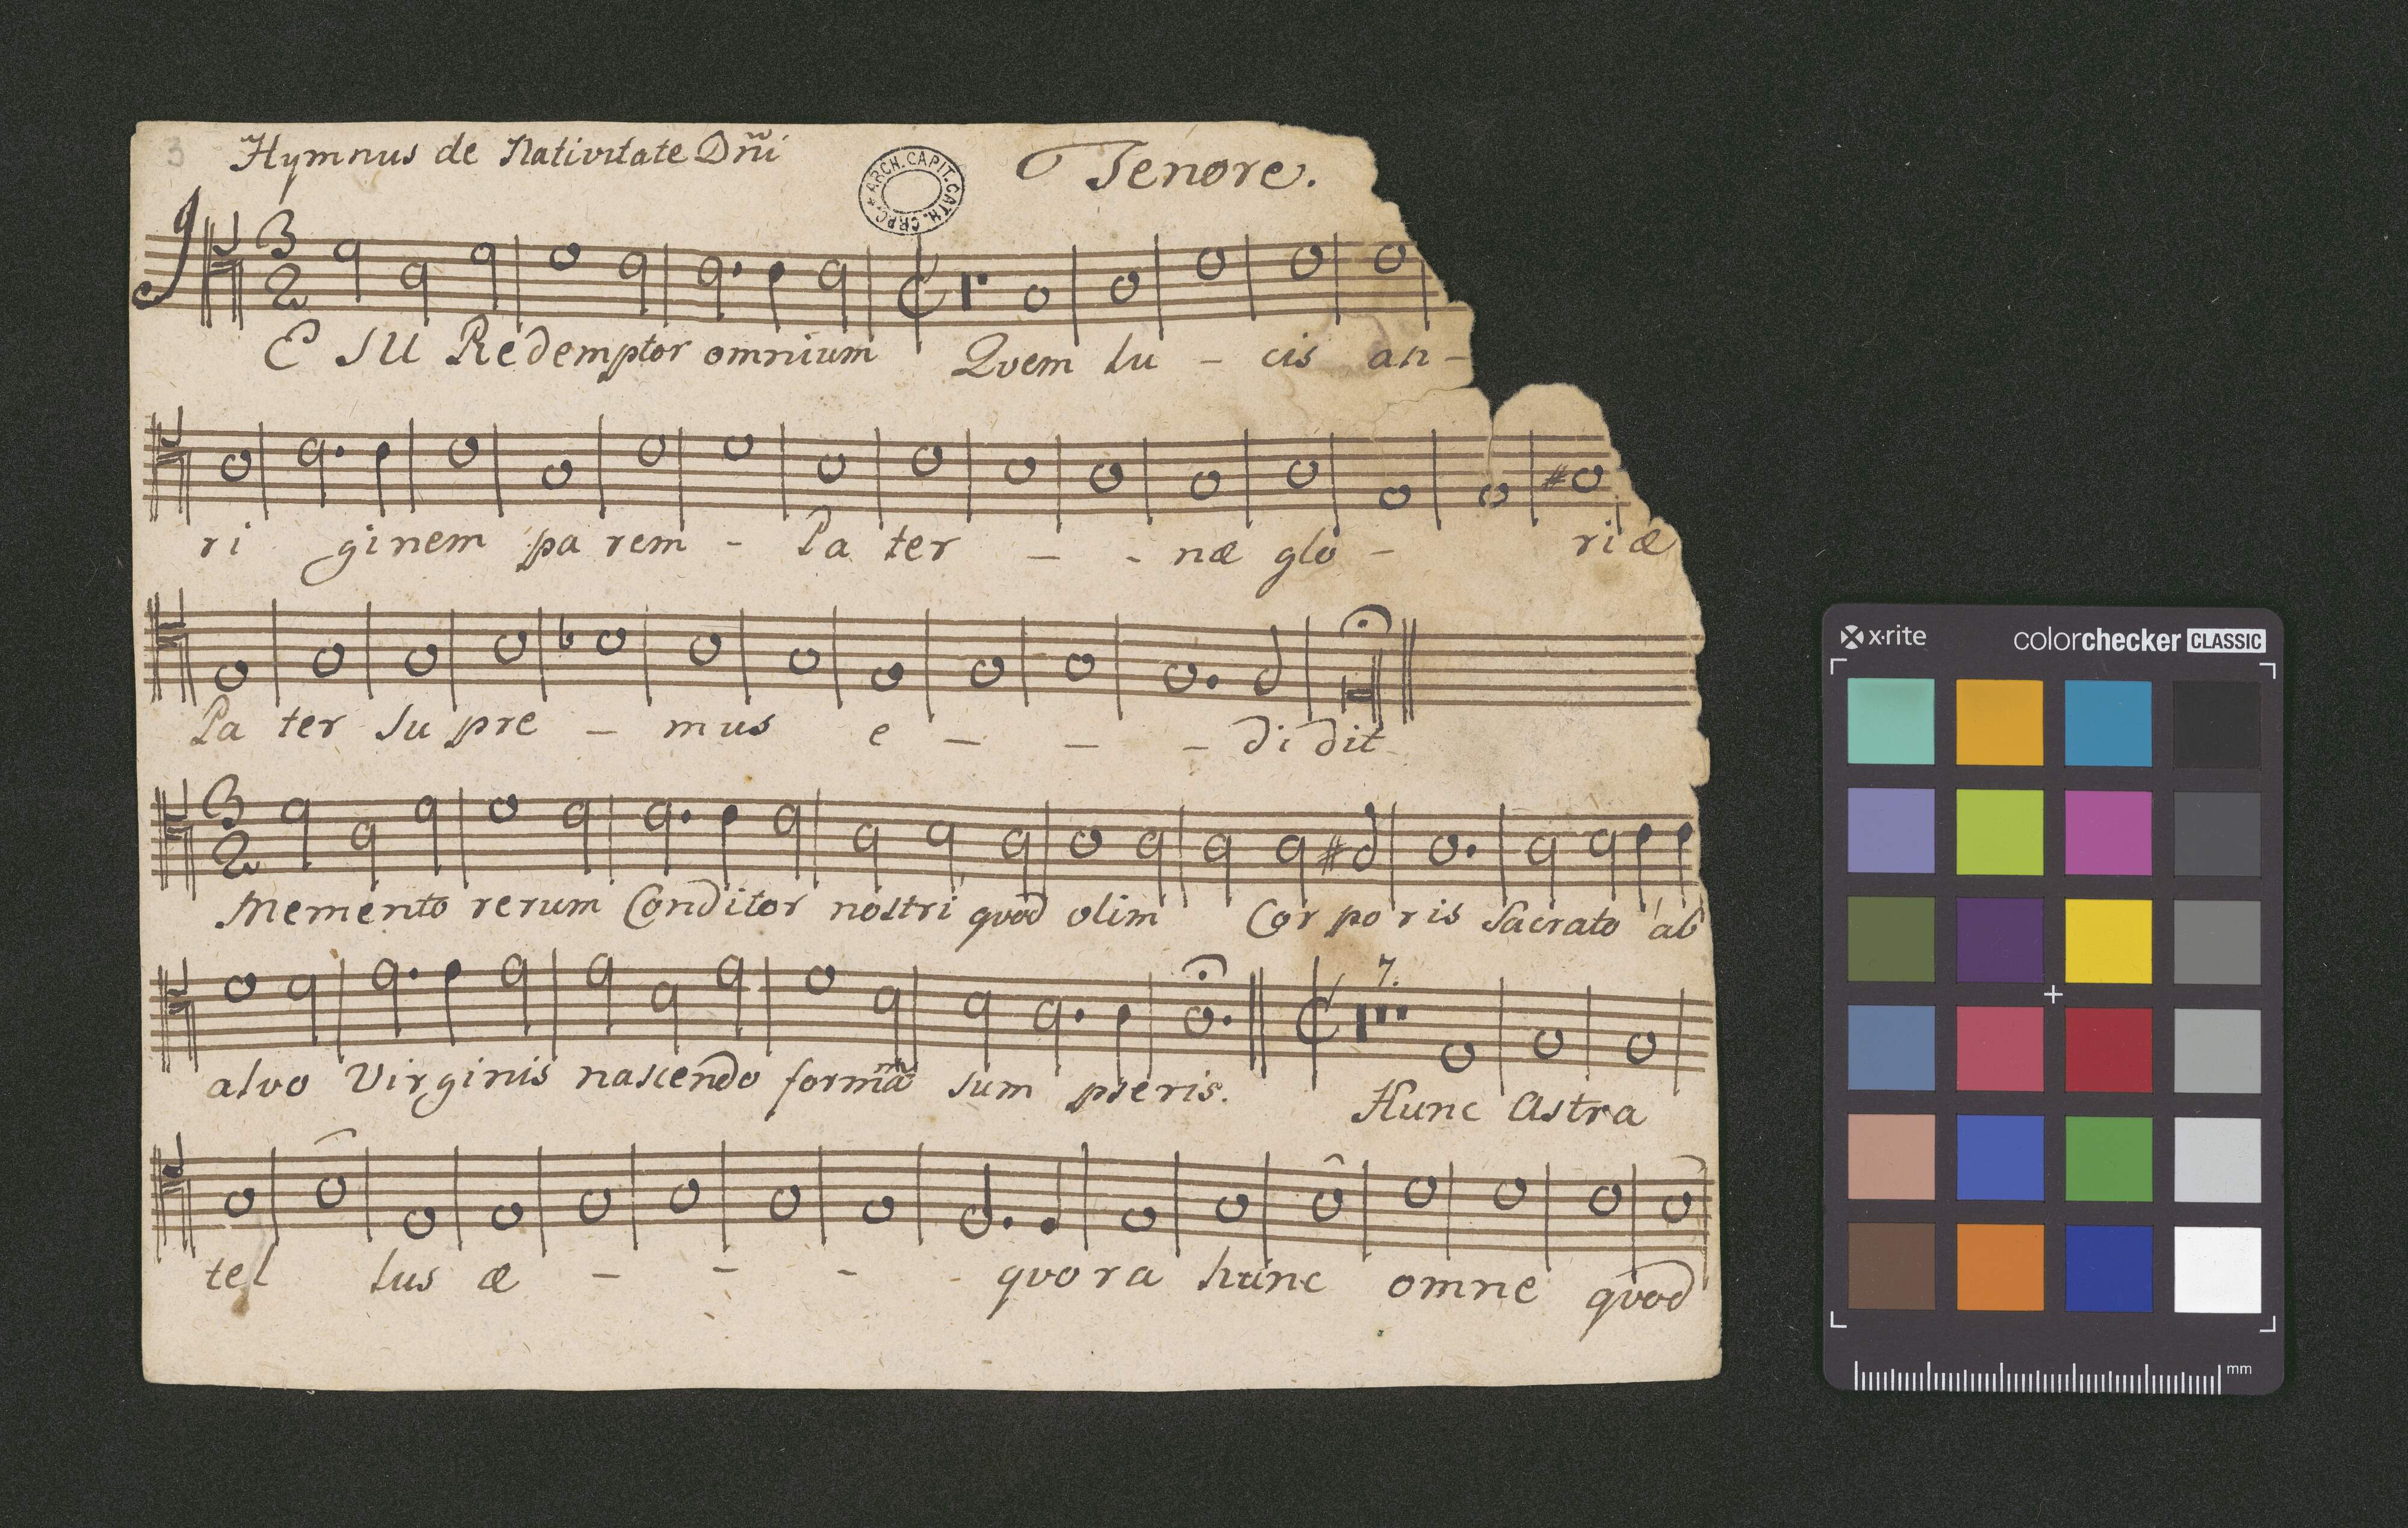 3 Hymnus de Nativitate Dñi
Tenore.
ARCH. CAPIT. CATH. CRPC.
JE SU Redemptor omnium Quem lu - cis an -
ri ginem pa rem - Pa ter - - næ glo - riæ
Pa ter su pre - mus e - - - di dit
Memento rerum Conditor nostri quod olim Cor po ris sacrato ab
7.
alvo Virginis nascendo formã sum pseris. Hunc Astra
tel lus æ - - - - quo ra hunc omne quod
x·rite colorchecker CLASSIC
mm